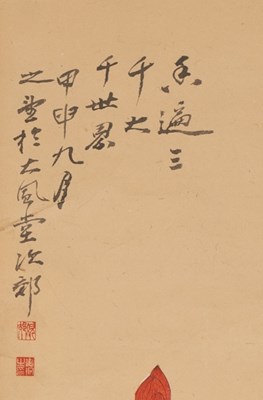 香遍三
千大
千世界
甲申九月
之望於大風堂次郊